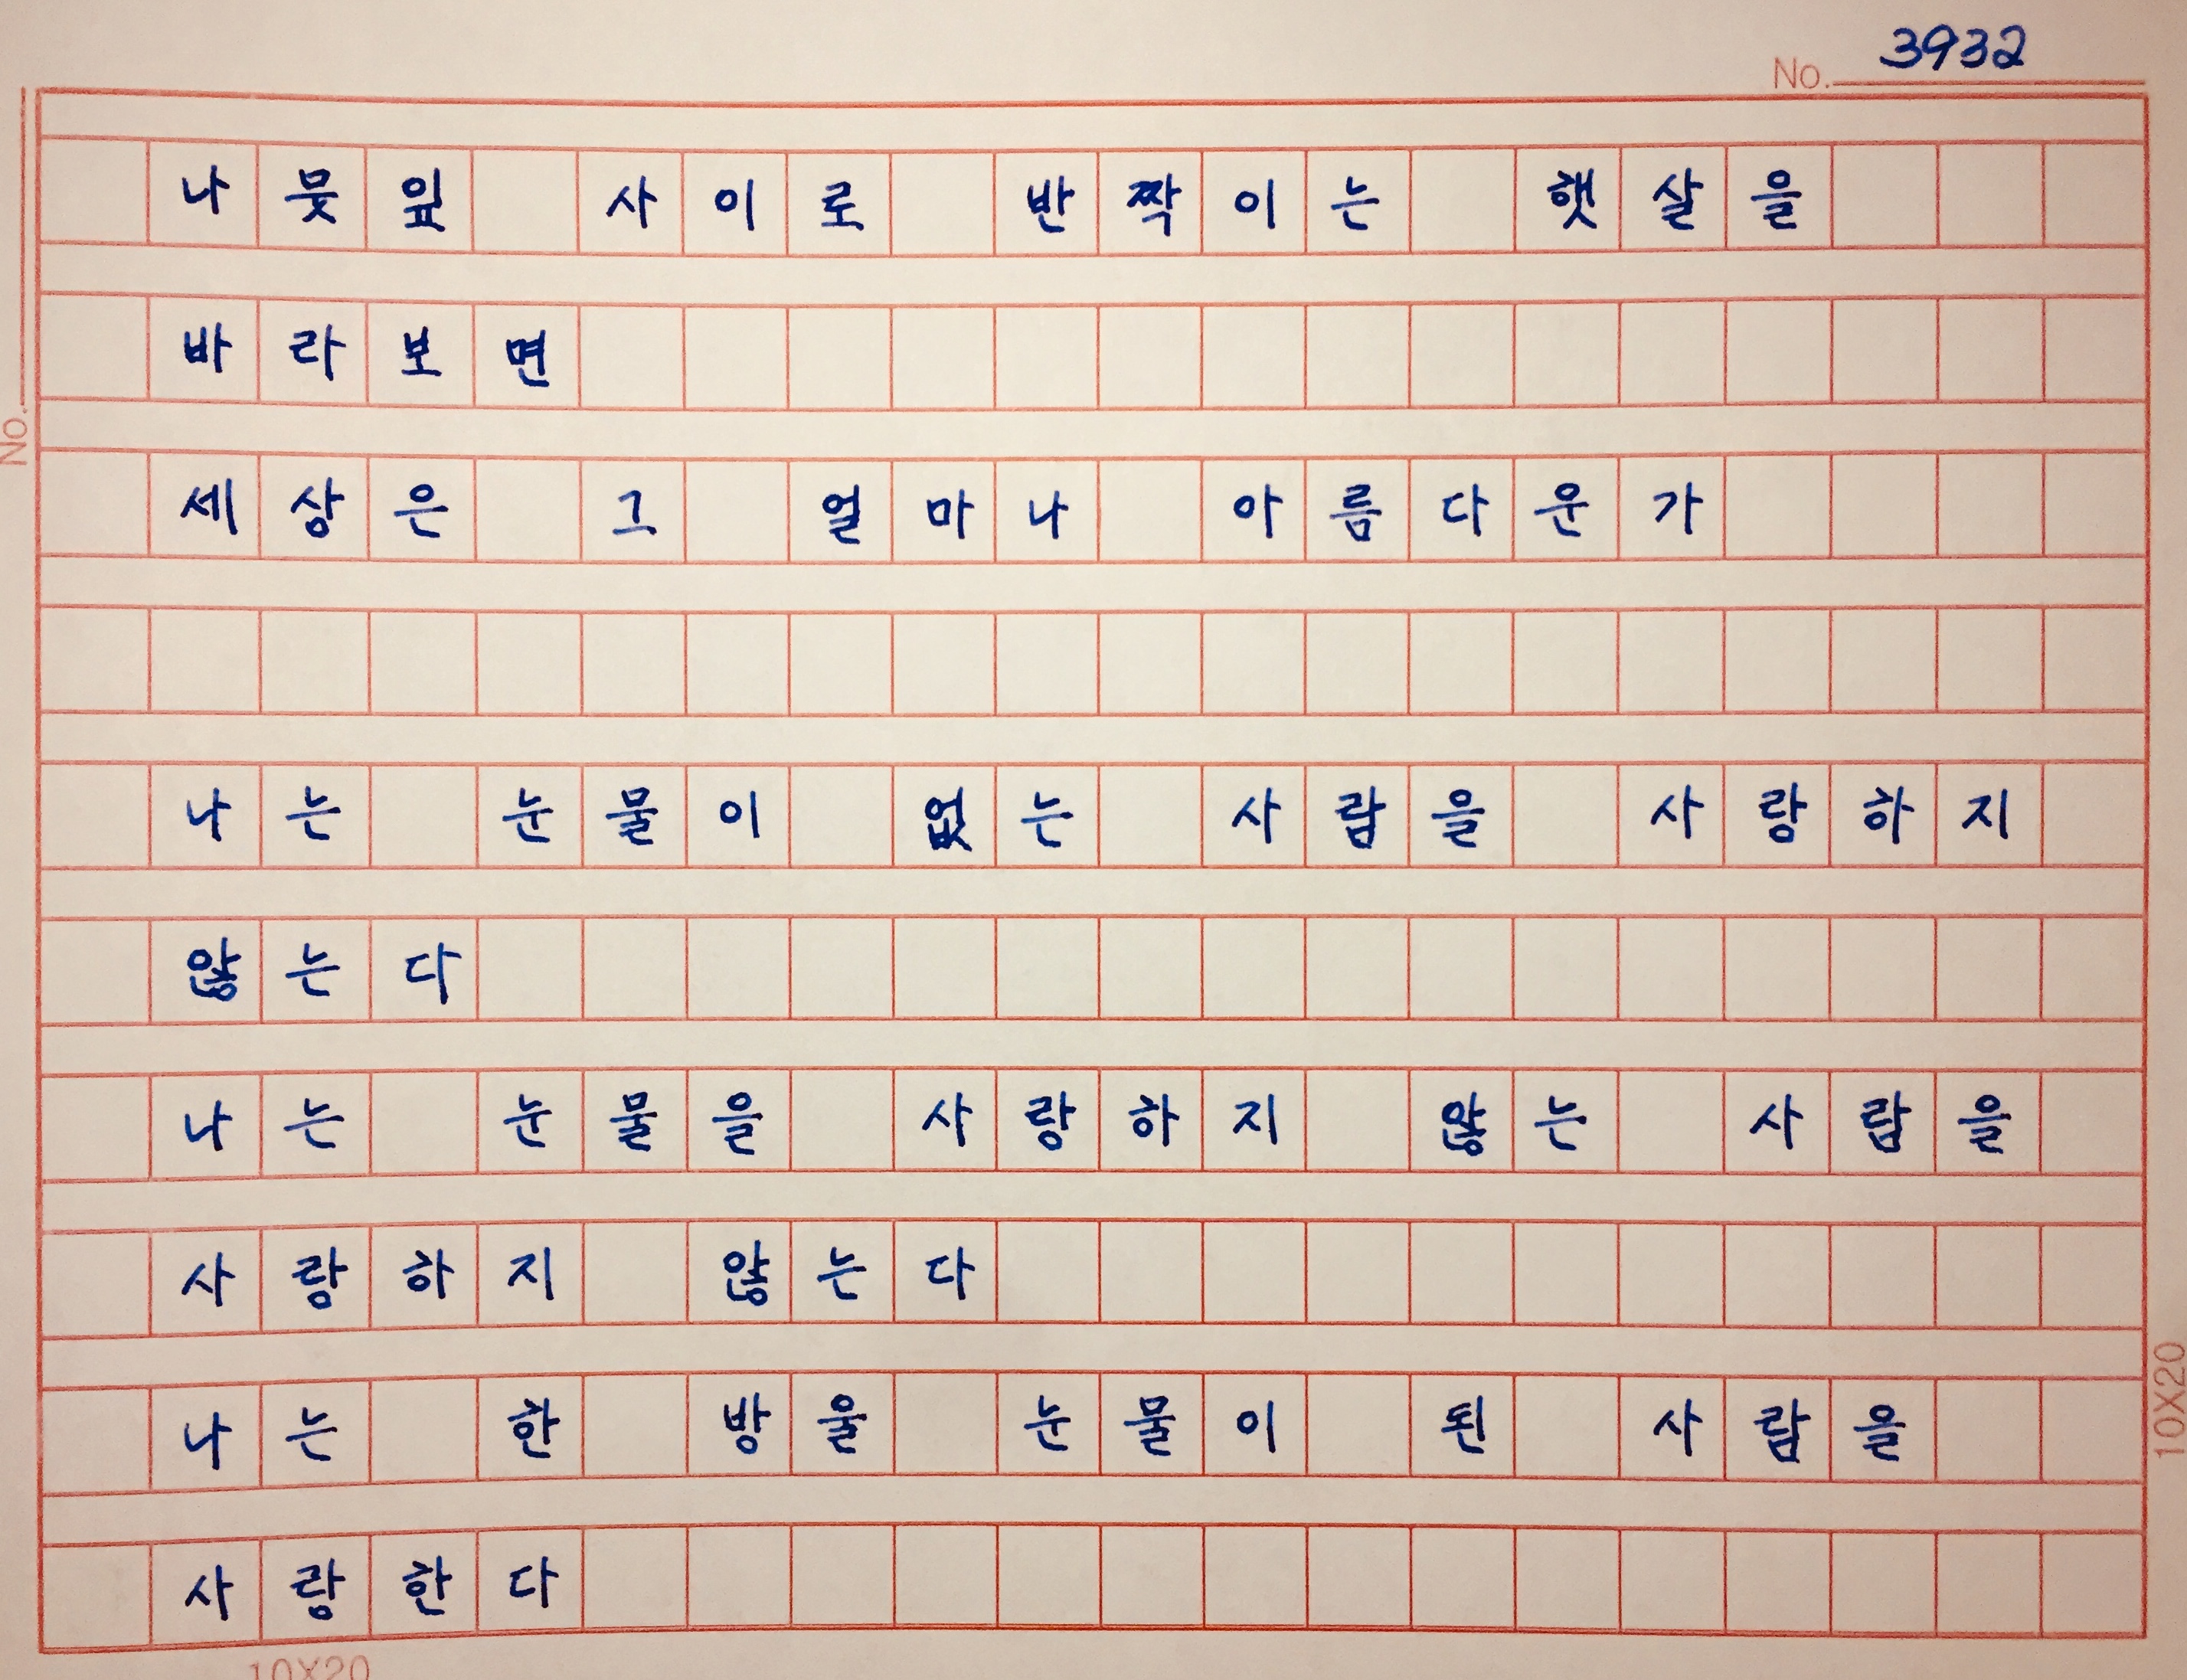 No. 3932
나뭇잎 사이로 반짝이는 햇살을
바라보면
세상은 그 얼마나 아름다운가
나는 눈물이 없는 사람을 사랑하지
않는다
나는 눈물을 사랑하지 않는 사람을
사랑하지 않는다
나는 한 방울 눈물이 된 사람을
사랑한다
No.
10X20
10X20